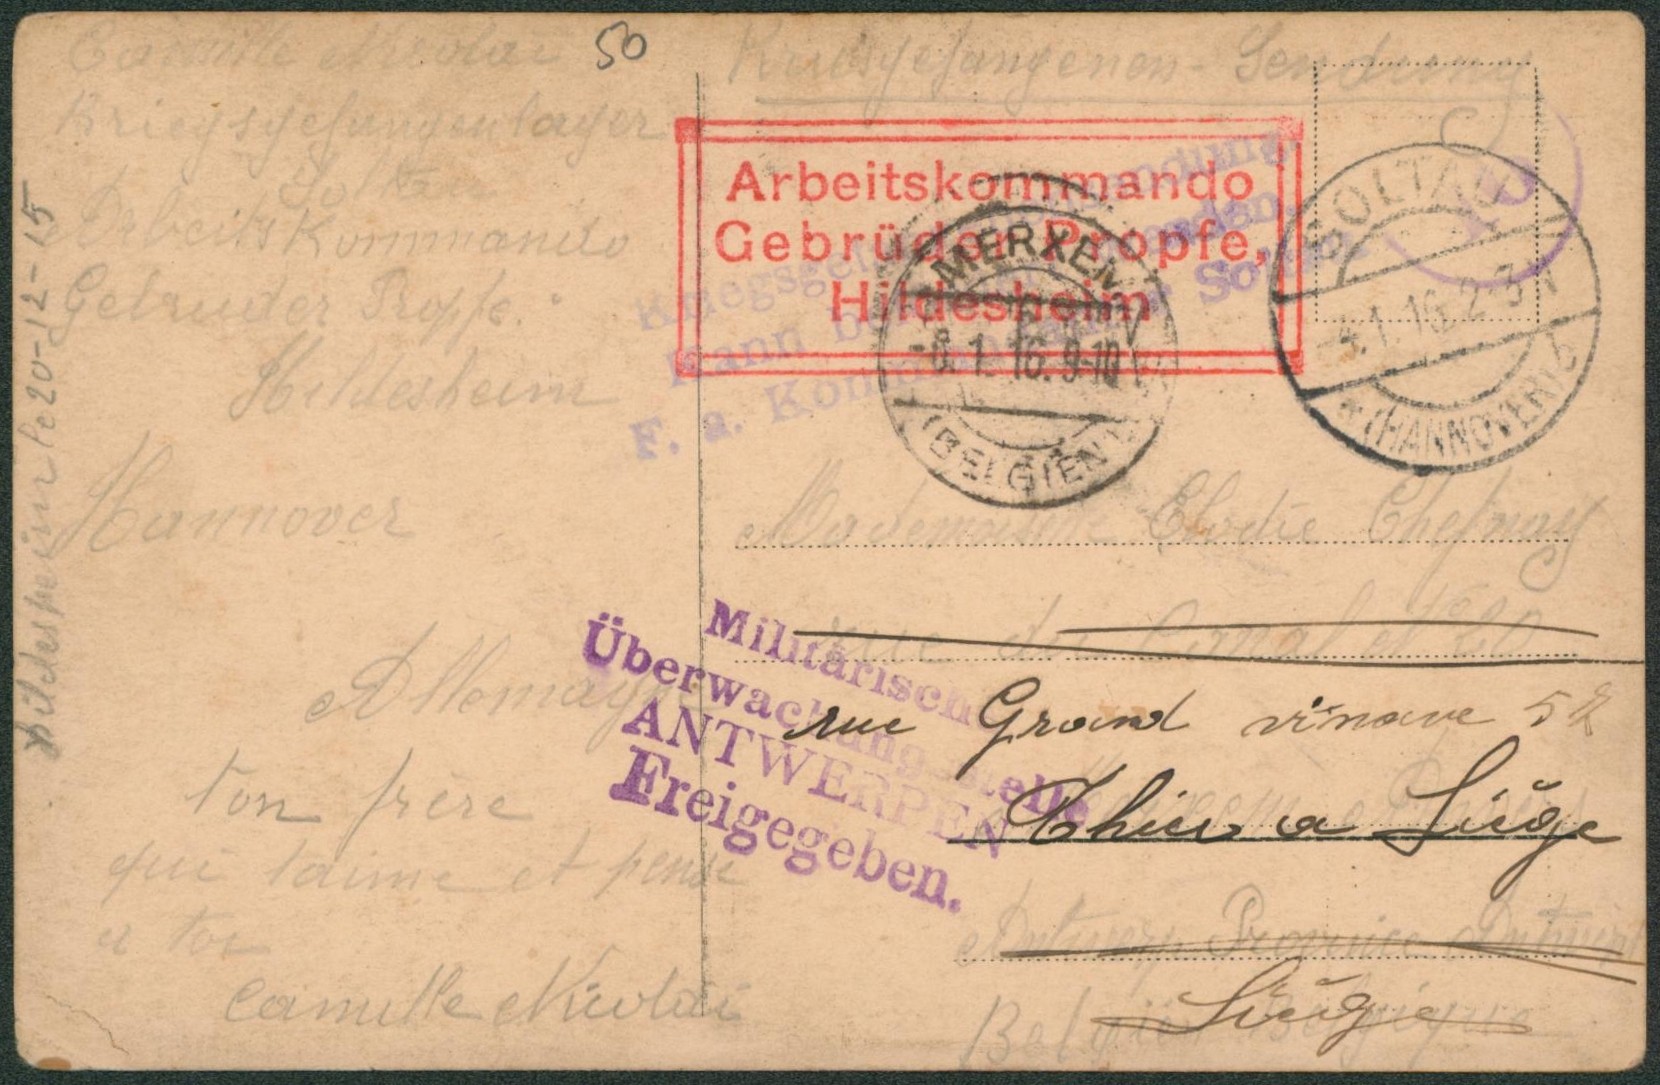 Camille Nicolai
Kriegsgefangenlager
Soltau
Arbeits Kommando
Gebruder Propfe.
Hildesheim
Hannover
Allemagne
ton frère
qui taime et pense
a toi
Camille Nicolai
Hildesheim le 20-12-15
50
Kriegsgefangenen-Sendung
Arbeitskommando
Gebrüder Propfe,
Hildesheim
Kann
F. a. Soltau
MERXEM
8.1.16. 9-10
(BELGIEN)
SOLTAU
1.16. 2-3
*(HANNOVER) b
Mademoiselle Elodie
rue du Canal
rue Grand vinave 52
Thier a Liège
Antwerp Province
Liége
Belgien Belgique
Militärische
Überwachungsstelle
ANTWERPEN
Freigegeben.